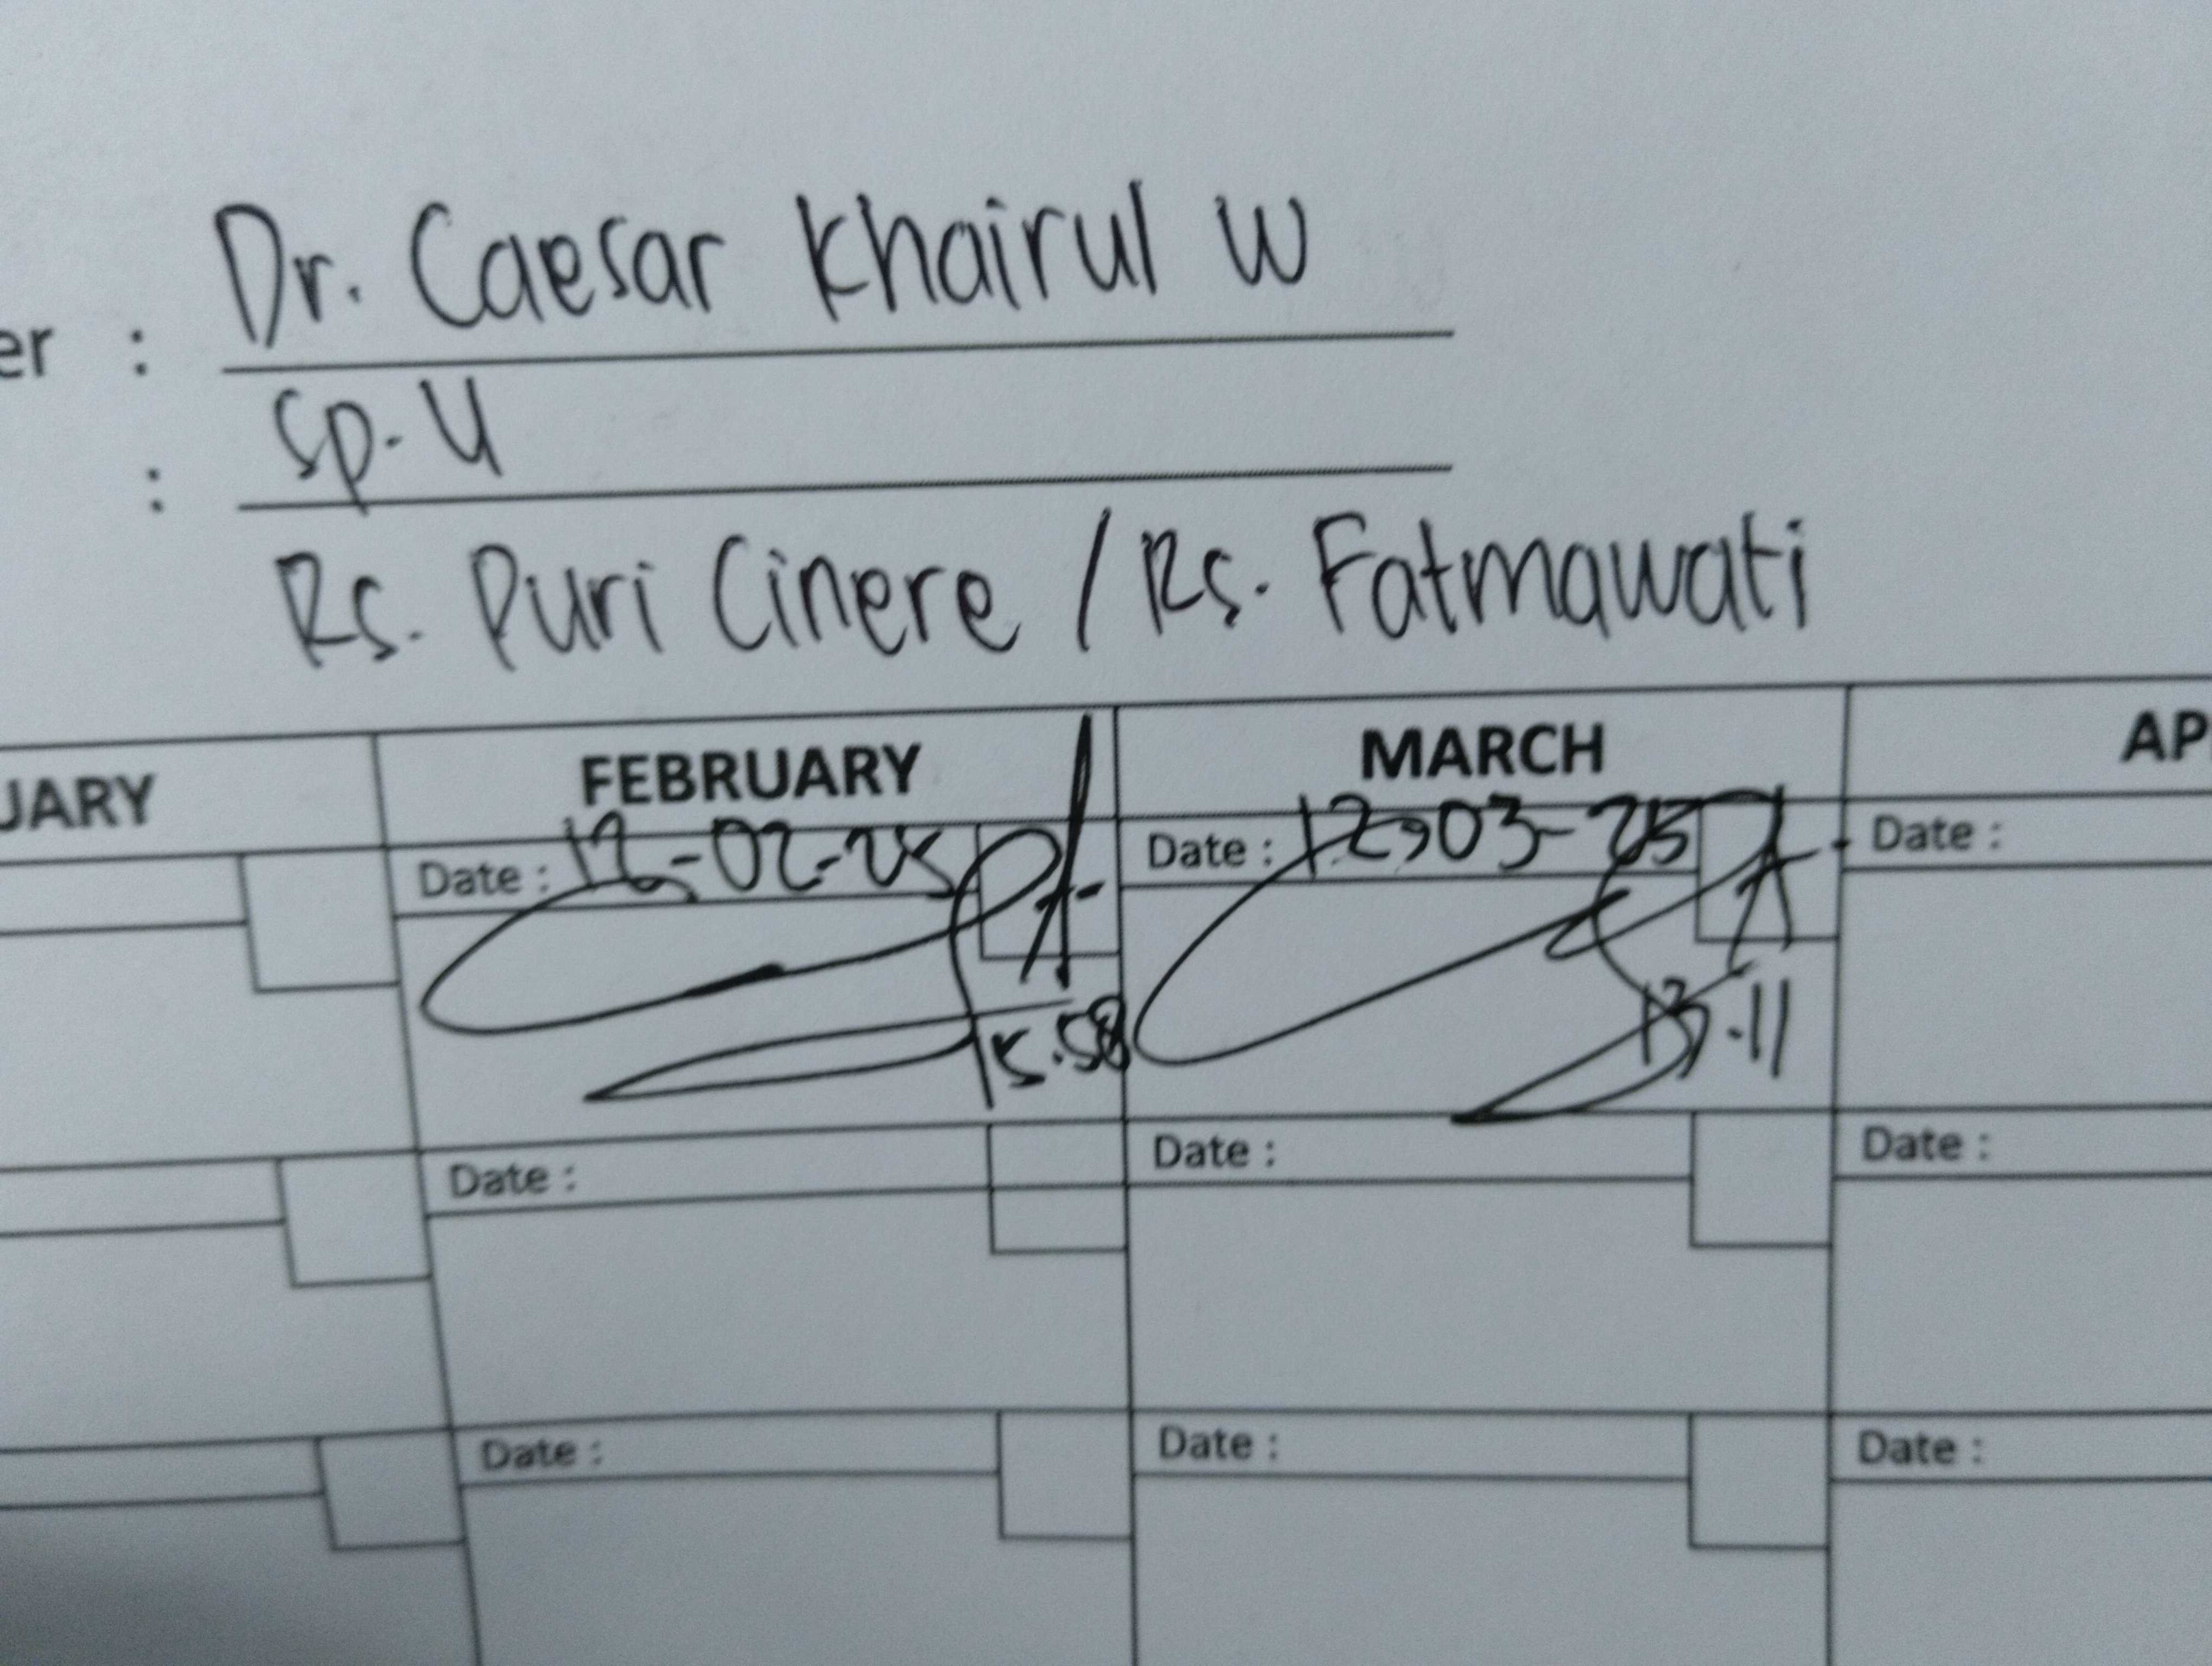 er : Dr. Caesar Khairul W
: Sp. U
Rs. Puri Cinere / Rs. Fatmawati
UARY FEBRUARY MARCH AP
Date : 12-02-25 Date : 12-03-25 Date :
15.58 13.11
Date : Date : Date :
Date : Date : Date :